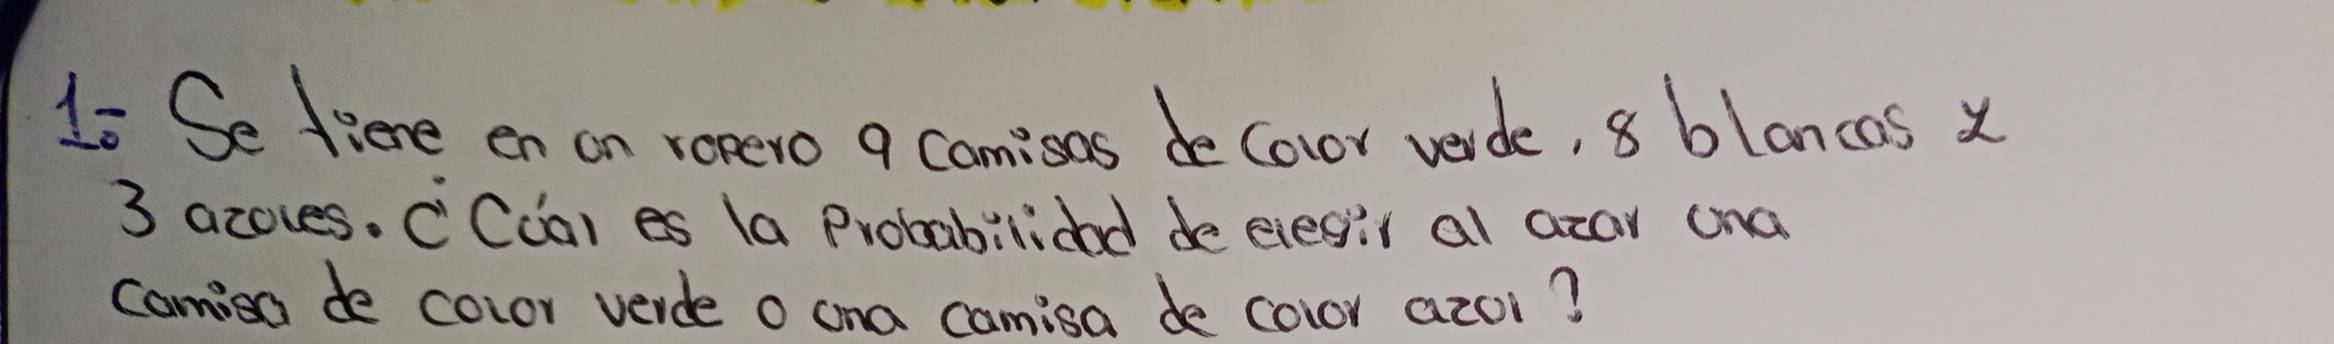 1.- Se tiene en un ropero 9 camisas de color verde, 8 blancas y
3 azules. ¿Cúal es la Probabilidad de elegir al azar una
camisa de color verde o una camisa de color azul?